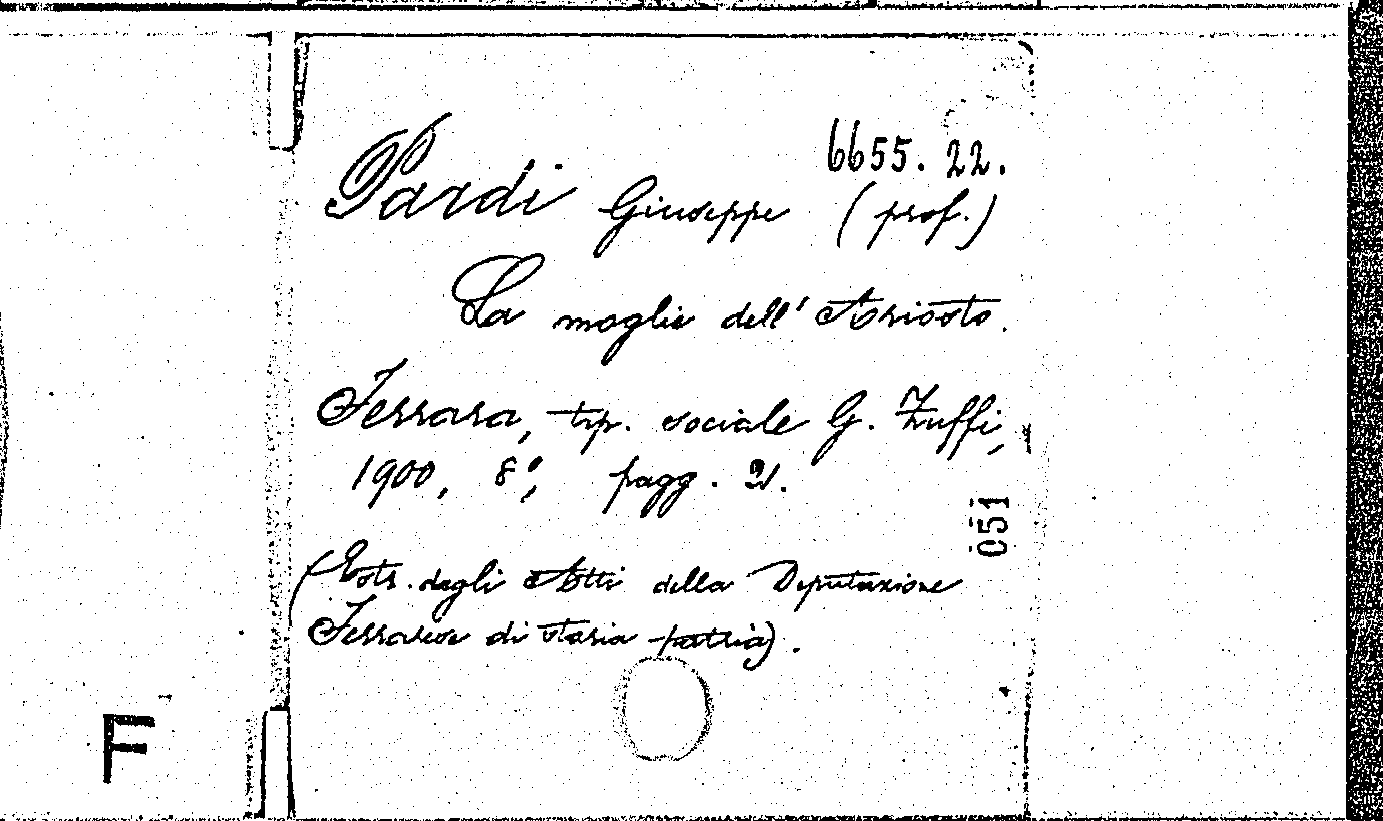 6655. 22.
Pardi Giuseppe (prof.)
La moglie dell'Ariosto.
Ferrara, tip. sociale G. Zuffi,
1900, 8°, pagg. 21.
051
(Estr. dagli Atti della Deputazione
Ferrarese di storia patria).
F